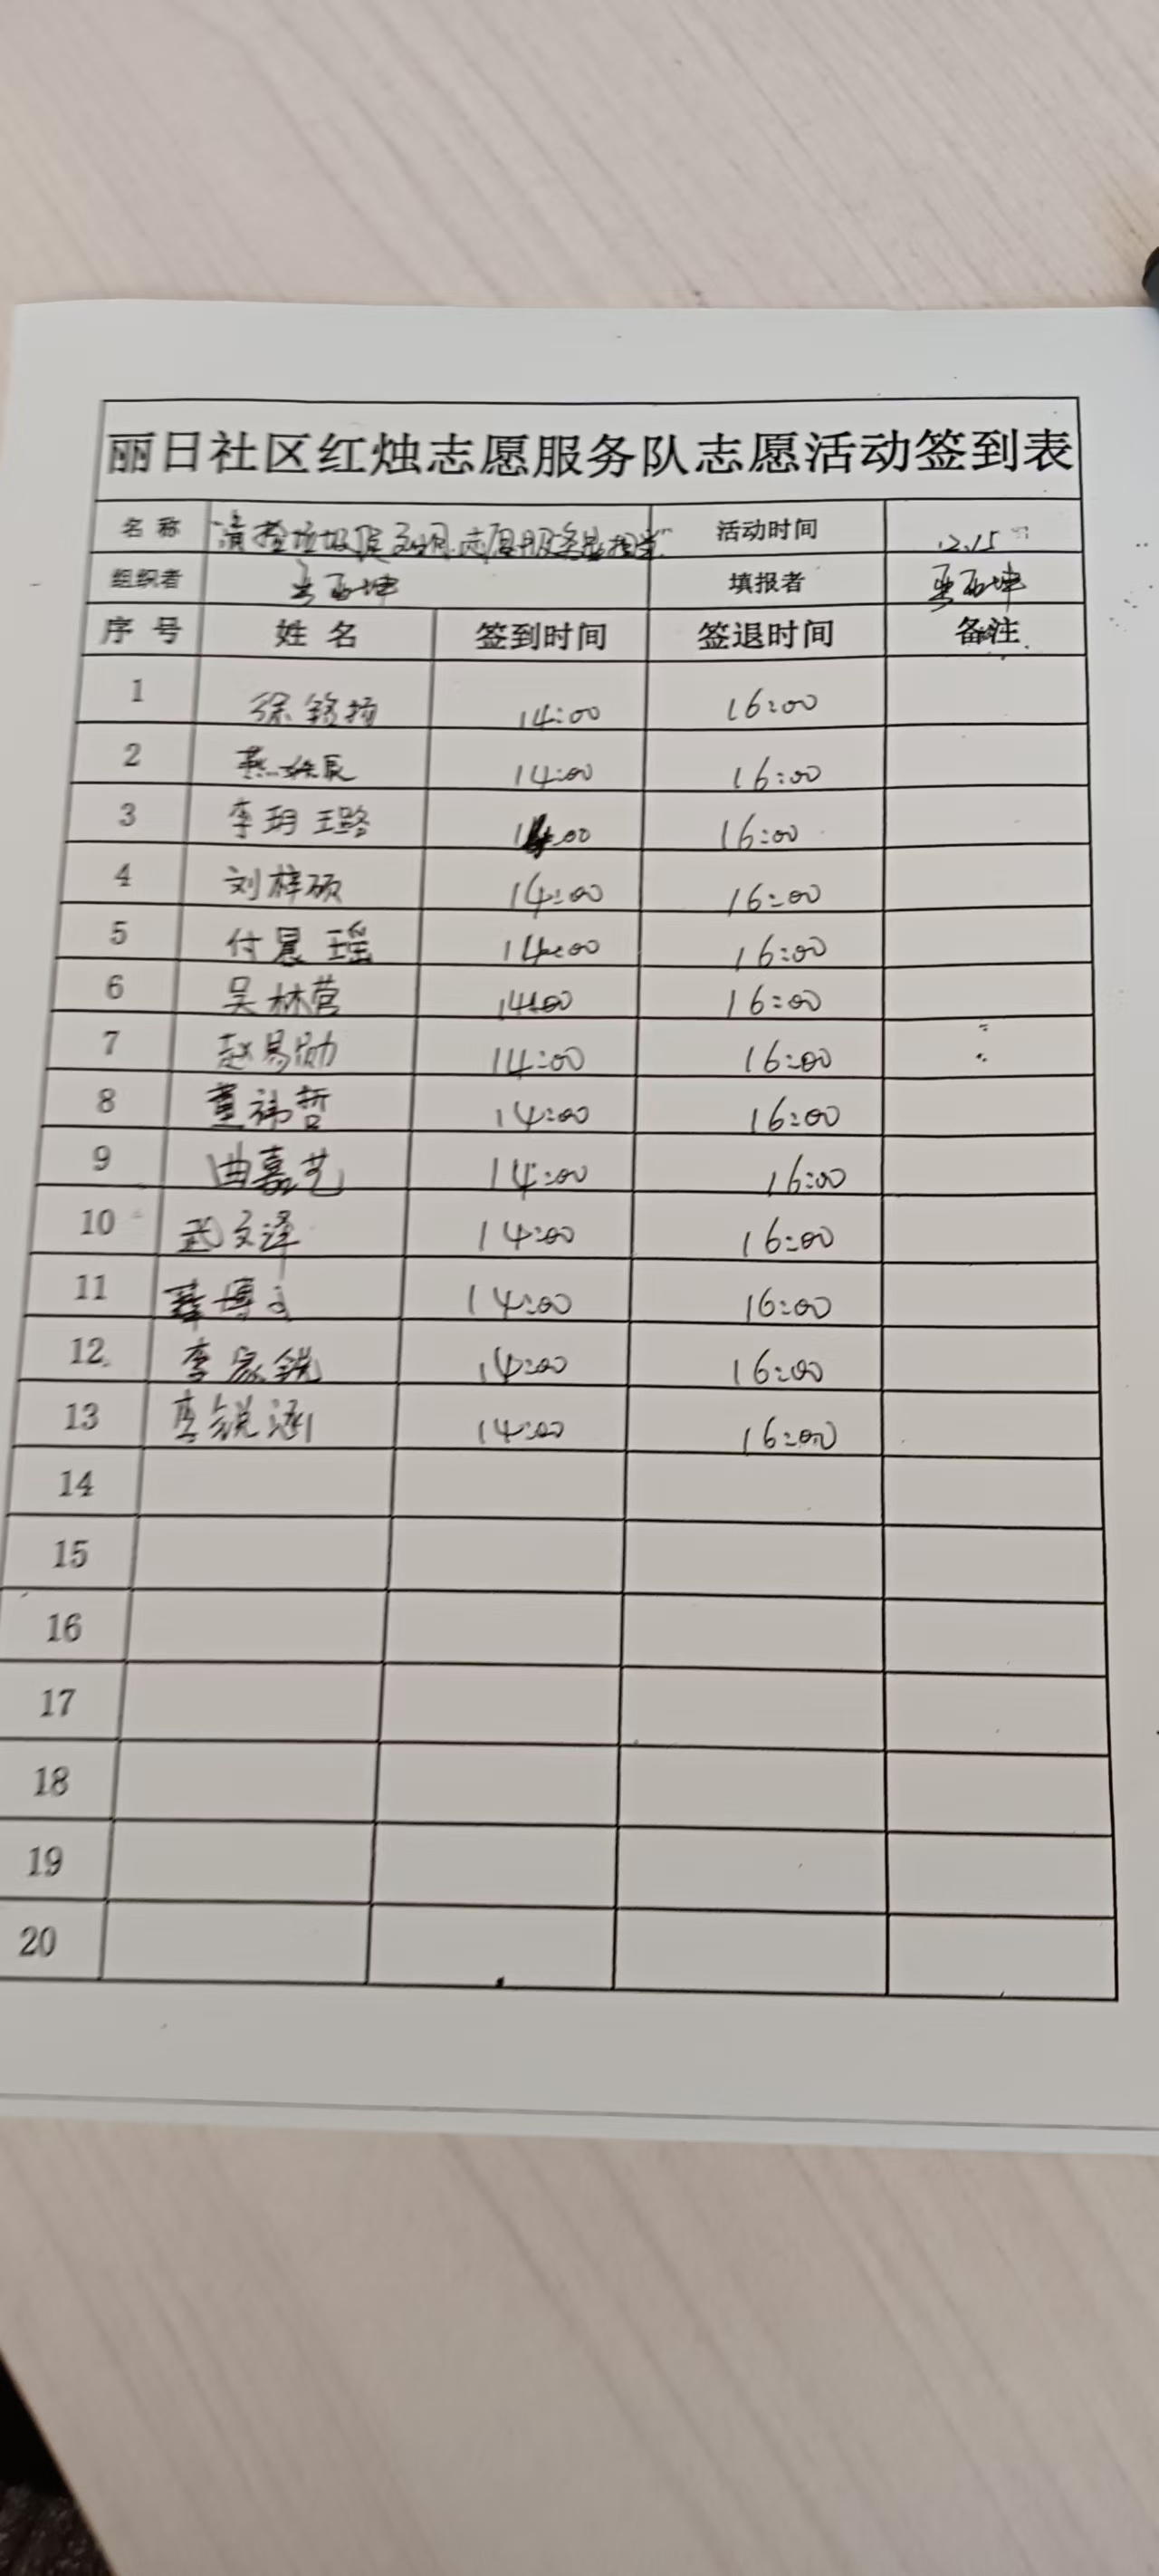 丽日社区红烛志愿服务队志愿活动签到表
名称 活动时间 12.15
组织者 填报者
序号 姓名 签到时间 签退时间 备注
1 徐铭扬 14:00 16:00
2 14:00 16:00
3 李玥璐 14:00 16:00
4 刘梓硕 14:00 16:00
5 付晨瑶 14:00 16:00
6 吴林营 14:00 16:00
7 赵易勋 14:00 16:00
8 董祎哲 14:00 16:00
9 曲嘉艺 14:00 16:00
10 武文泽 14:00 16:00
11 薛博文 14:00 16:00
12 李宸锐 14:00 16:00
13 李锐涵 14:00 16:00
14
15
16
17
18
19
20